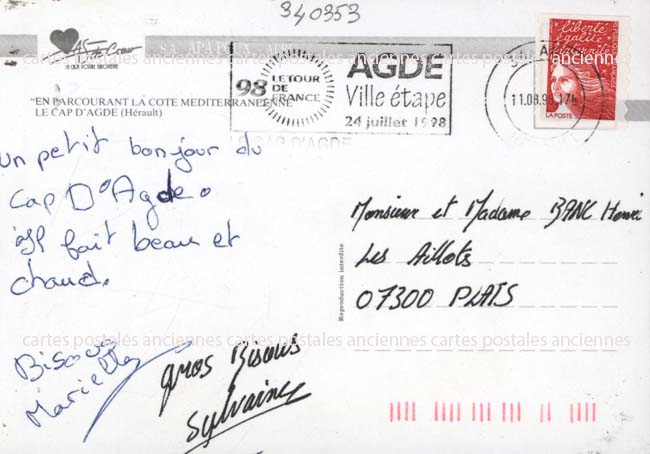 340353
AS de Coeur
98 LE TOUR
DE
FRANCE
AGDE
Ville étape
24 juillet 1998
liberté
égalité
fraternité
LA POSTE
11.08.98.17h
"EN PARCOURANT LA COTE MEDITERRANEENNE"
LE CAP D'AGDE (Hérault)
LE CAP D'AGDE
un petit bonjour du
Cap D'Agde.
Il fait beau et
chaud.
Bisous
Marielle
gros Bisous
Sylvaine
Reproduction interdite
Monsieur et Madame BANC Henri
Les Aillots
07300 PLATS
cartes postales anciennes cartes postales anciennes cartes postales anciennes
cartes postales anciennes cartes postales anciennes cartes postales anciennes